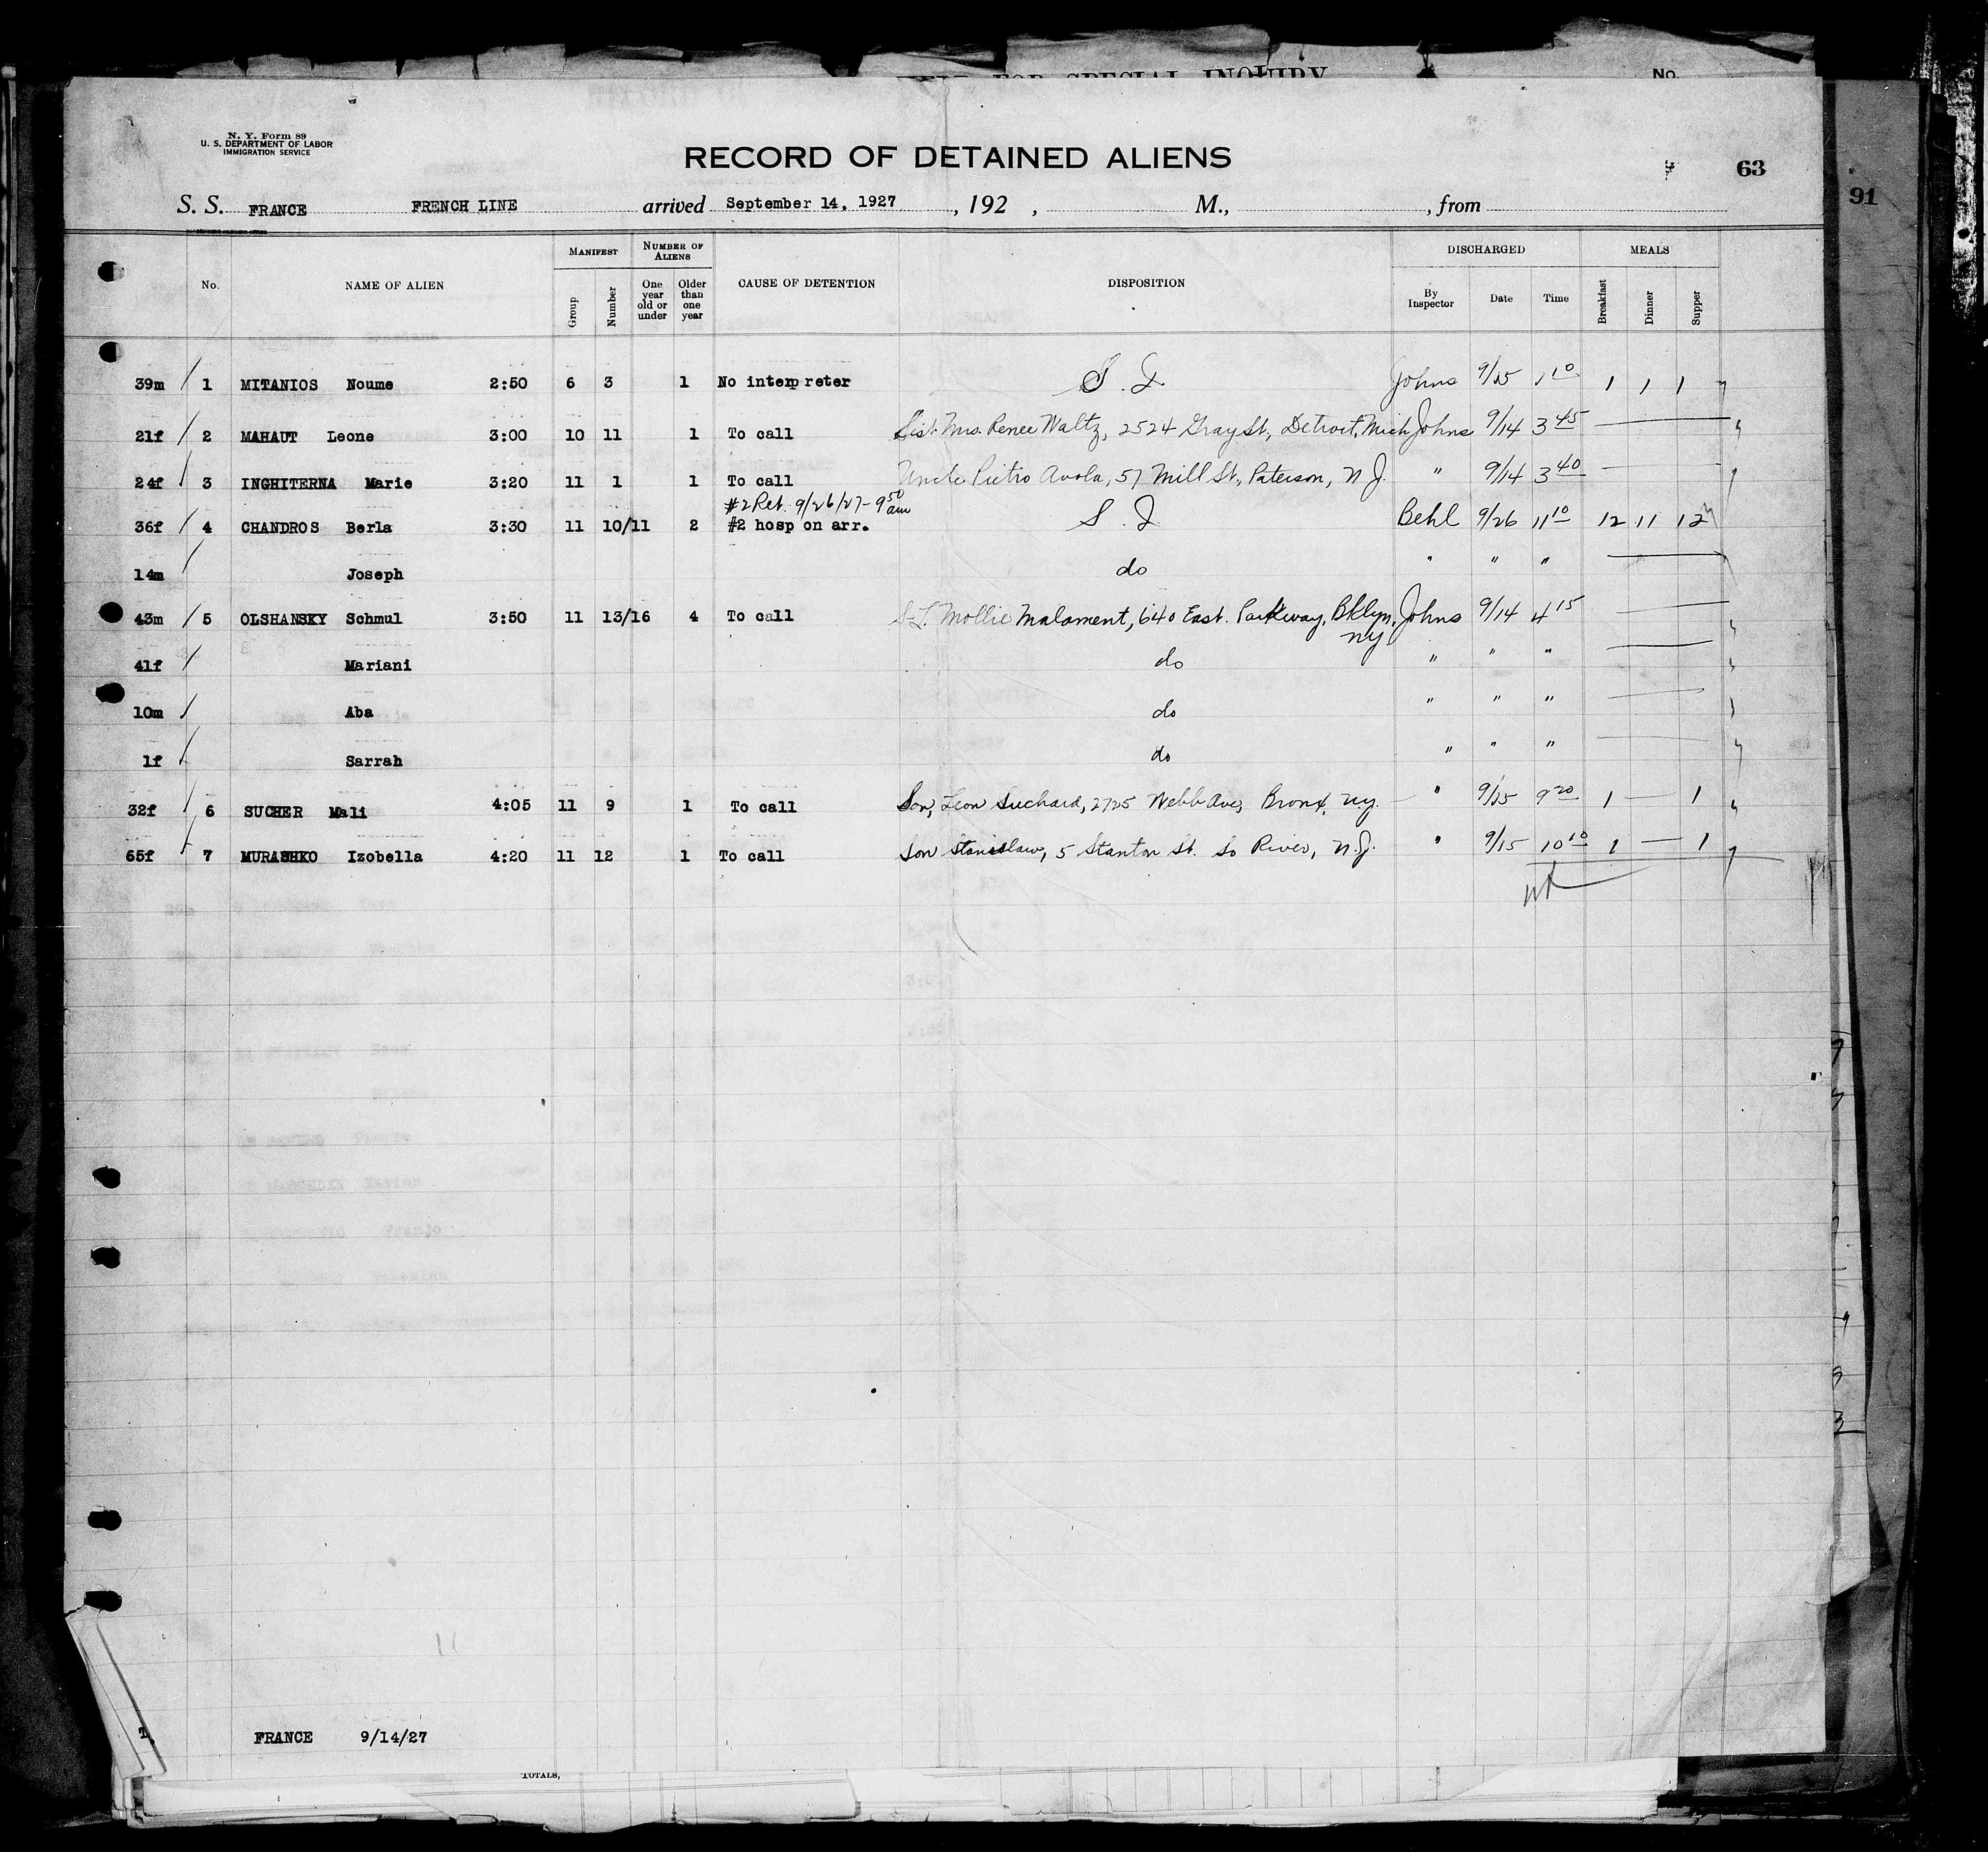 FOR SPECIAL INQUIRY No.
N. Y. Form 89
U. S. DEPARTMENT OF LABOR
IMMIGRATION SERVICE
RECORD OF DETAINED ALIENS
63
91
S. S. FRANCE FRENCH LINE arrived September 14, 1927, 192 , M., , from
No. NAME OF ALIEN MANIFEST Group Number NUMBER OF ALIENS One year old or under Older than one year CAUSE OF DETENTION DISPOSITION DISCHARGED By Inspector Date Time MEALS Breakfast Dinner Supper
39m / 1 MITANIOS Noume 2:50 6 3 1 No interpreter S. I. Johns 9/15 1 10 1 1 1
21f / 2 MAHAUT Leone 3:00 10 11 1 To call Sist. Mrs. Renee Waltz, 2524 Gray St., Detroit, Mich Johns 9/14 3 45
24f / 3 INGHITERNA Marie 3:20 11 1 1 To call Uncle Pietro Avola, 57 Mill St., Paterson, N J. " 9/14 3 40
#2 Ret. 9/26/27 - 9 50 am
36f / 4 CHANDROS Berla 3:30 11 10/11 2 #2 hosp on arr. S. I. Behl 9/26 11 10 12 11 12
14m / Joseph do " " "
43m / 5 OLSHANSKY Schmul 3:50 11 13/16 4 To call Mollie Malament, 640 East. Parkway, Bklyn, Johns 9/14 4 15
ny
41f / Mariani do " " "
10m / Aba do " " "
1f / Sarrah do " " "
32f / 6 SUCHER Mali 4:05 11 9 1 To call Son, Leon Suchard, 2725 Webb Ave, Bronx, ny. " 9/15 9 20 1 — 1
65f / 7 MURASHKO Izobella 4:20 11 12 1 To call Son Stanislaw, 5 Stanton St. So River, N.J. " 9/15 10 10 1 — 1
FRANCE 9/14/27
TOTALS,